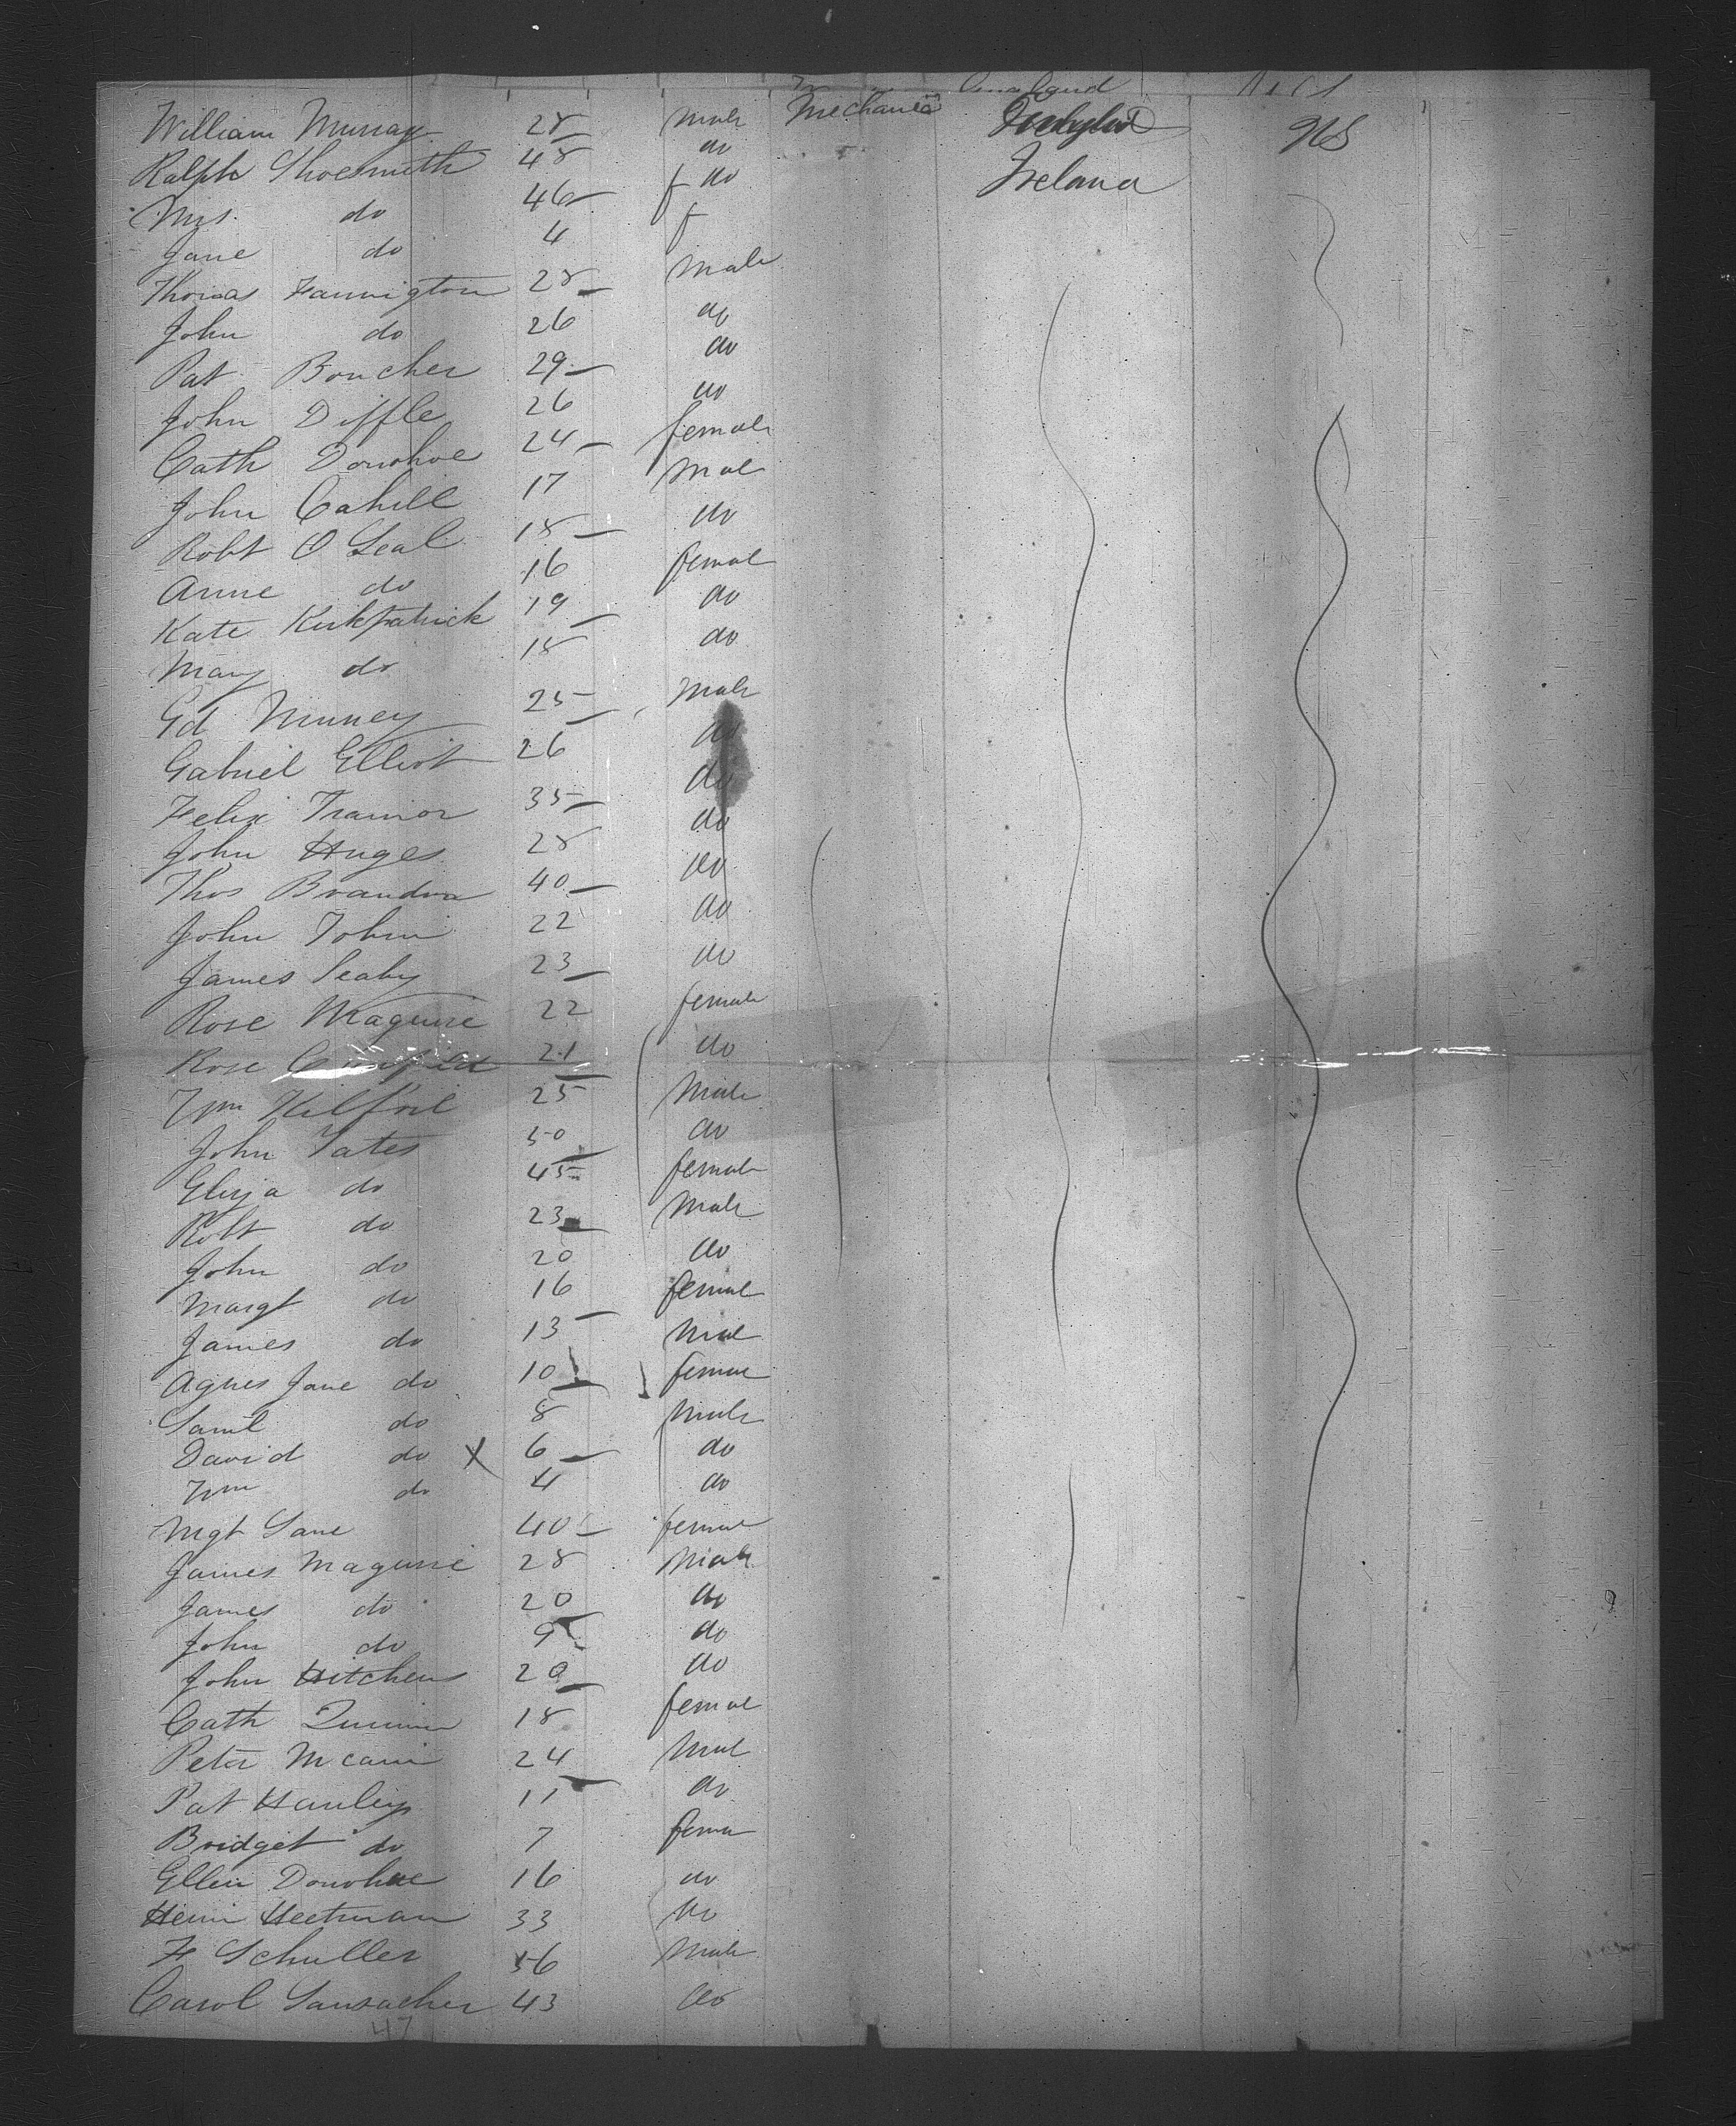 William Murray 28 male Mechanic Ireland US
Ralph Shoesmith 48 do Ireland
Mrs. do 46 f do
Jane do 4 f
Thomas Farrington 28 male
John do 26 do
Pat Boucher 29 do
John Diffle 26 do
Cath Donohoe 24 female
John Cahill 17 mal
Robt O Leal 18 do
Anne do 16 femal
Kate Kirkpatrick 19 do
Mary do 18 do
Ed Munney 25 male
Gabriel Elliot 26 do
Felix Trainor 35 do
John Huges 28 do
Thos 40 do
John Tobin 22 do
James Leahy 23 do
Rose Maguire 22 female
Rose 21 do
Wm Kilfoil 25 Male
John Yates 50 do
Eliza do 45 female
Robt do 23 Male
John do 20 do
Margt do 16 femal
James do 13 Mal
Agnes Jane do 10 femal
Saml do 8 Male
David do X 6 do
Wm do 4 do
Mgt Lane 40 female
James Maguire 28 Male
James do 20 do
John do 9 do
John Hitchens 20 do
Cath 18 femal
Peter McCann 24 Mal
Pat Hanley 11 do
Bridget do 7 fema
Ellen Donohue 16 do
Heetman 33 do
F Schuller 56 Male
Carol Lansacher 43 do
47